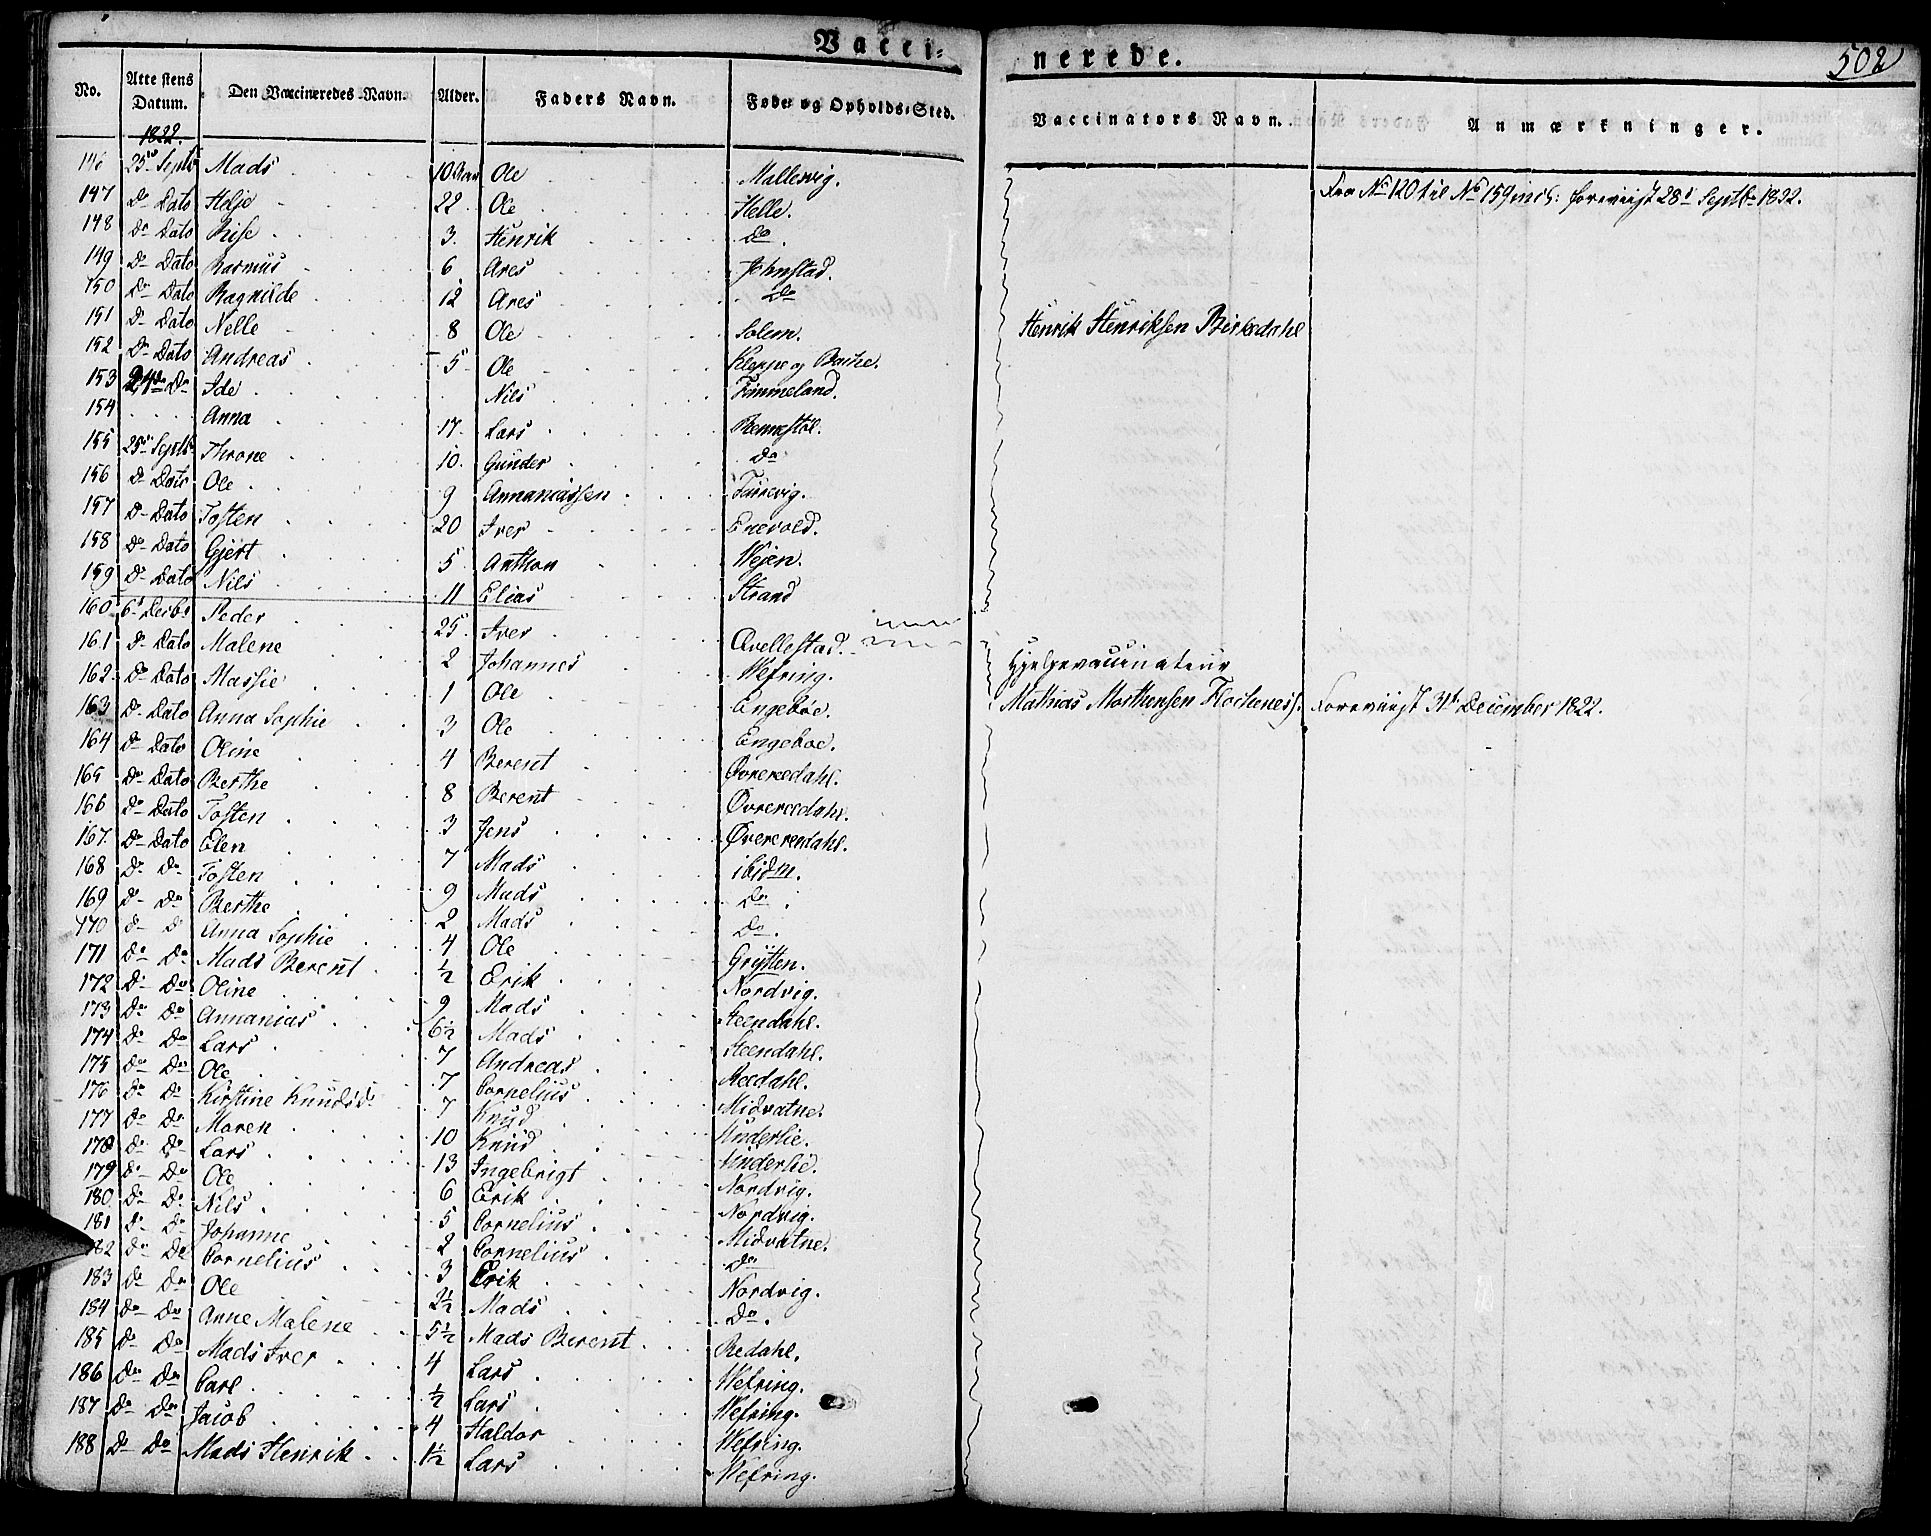 Vacci-
nerede.
502
No. Attestens Datum. Den Vaccineredes Navn. Alder. Faders Navn. Føde og Opholds-Sted. Vaccinators Navn. Anmærkninger.
1822.
146 25de Septb Mads 10 Aar Ole Mallevig.
147 Do Dato Helje 22 Ole Helle.
Fra No 120 til No 159 incl: foreviist 28d Septbr 1822.
148 Do Dato Brise 3. Henrik Do.
149 Do Dato Rasmus 6 Ares Johnstad.
150 Do Dato Ragnilde 12 Ares Do
151 Do Dato Nelle 8 Ole Solem.
Henrik Henriksen Birkedahl
152 Do Dato Andreas 5 Ole Kleppe og Bache.
153 24de Do Ide Nils Fimmeland.
154 Anna 17. Lars Rennestøl.
155 25de Septb Throne 10. Gunder Do
156 Do Dato Ole 9 Annaniassen Farrevig.
157 Do Dato Tosten 20 Iver Enevold.
158 Do Dato Gjert 5 Anthon Wejen.
159 Do Dato Nils 11 Elias Strand
160 6d Decbr Peder 25. Iver Qvellestad.
161 Do Dato Malene 2 Johannes Wefring.
Hjelpevaccinateur
162 Do Dato Massie 1 Ole Engebøe.
Mathias Morthensen Flochenes. Foreviist 31d December 1822.
163 Do Dato Anna Sophie 3 Ole Engebøe.
164 Do Dato Oline 4 Berent Øvreredahl.
165 Do Dato Berthe 8 Berent Øvrereedahl.
166 Do Dato Tosten 3 Jens Øvereredahl.
167. Do Dato Elen 7 Mads ibidm.
168 Do Do Tosten 9 Mads Do.
169 Do Do Berthe 2 Mads Do.
170 Do Do Anna Sophie 4 Ole Grytten.
171 Do Do Mads Berent 1/2 Erik Nordvig.
172 Do Do Oline 9 Mads Steendahl.
173 Do Do Annanias 6 1/2 Mads Steendahl.
174 Do Do Lars 7 Andreas Reedahl.
175 Do Do Ole 7 Cornelius Midvatne.
176 Do Do Kirstine Knudsdr 7 Knud Underlie.
177 Do Do Maren 10 Knud Underlie.
178 Do Do Lars 13 Ingebrigt Nordvig.
179 Do Do Ole 6 Erik Nordvig.
180 Do Do Nils 5 Cornelius Midvatne.
181 Do Do Johanne 2 Cornelius Do
182 Do Do Cornelius 3 Erik Nordvig.
183 Do Do Ole 2 1/2 Mads Do.
184 Do Do Anne Malene 5 1/2 Mads Berent Redahl.
185 Do Do Mads Iver 4 Lars Wefring.
186 Do Do Carl 1/2 Lars Wefring.
187 Do Do Jacob 4 Haldor Wefring.
188 Do Do Mads Henrik 1 1/2 Lars Wefring.